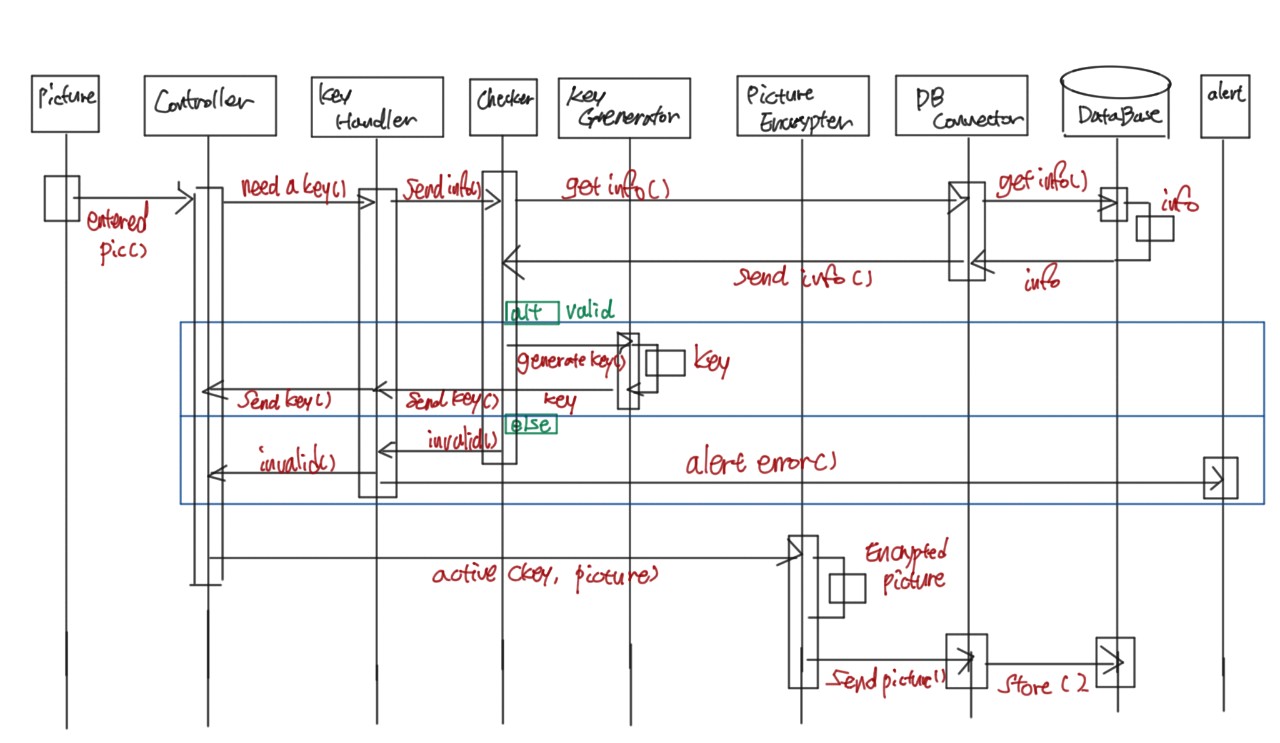 Picture
Controller
key
Handler
Checker
Key
Generator
Picture
Encrypter
DB
Connector
DataBase
alert
need a key()
Send info()
get info()
get info()
info
entered
pic()
send info()
info
alt
valid
generate key()
key
Send key()
Send key()
key
else
invalid()
invalid()
alert error()
active (key, picture)
Encrypted
picture
Send picture()
Store ( )